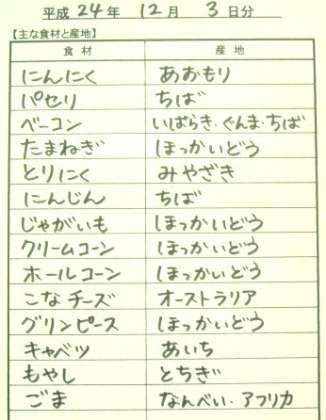 平成 24 年 12 月 3 日分
【主な食材と産地】
食材 産地
にんにく あおもり
パセリ ちば
ベーコン いばらき・ぐんま・ちば
たまねぎ ほっかいどう
とりにく みやざき
にんじん ちば
じゃがいも ほっかいどう
クリームコーン ほっかいどう
ホールコーン ほっかいどう
こなチーズ オーストラリア
グリンピース ほっかいどう
キャベツ あいち
もやし とちぎ
ごま なんべい・アフリカ